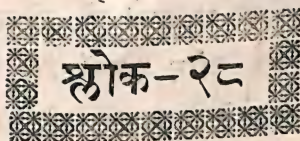 श्लोक-२८